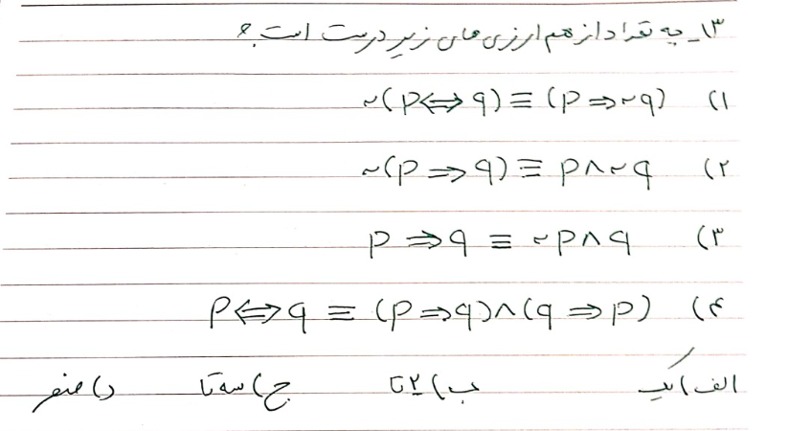 ۱۳_ چه تعداد از هم ارزی های زیر درست است؟
۱) ~(p⇔q) ≡ (p⇒~q)
۲) ~(p⇒q) ≡ p∧~q
۳) p⇒q ≡ ~p∧q
۴) p⇔q ≡ (p⇒q)∧(q⇒p)
الف) یک ب) ۲ تا ج) سه تا د) صفر